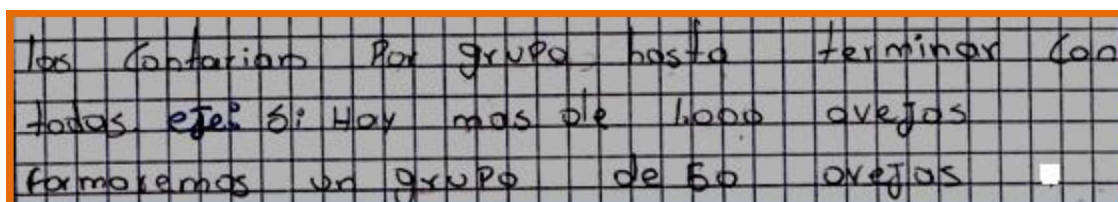 las Contariam Por grupo hasta terminar Con
todas. eje: Si Hay mas de 1,000 ovejas
formaremos un grupo de 50 ovejas